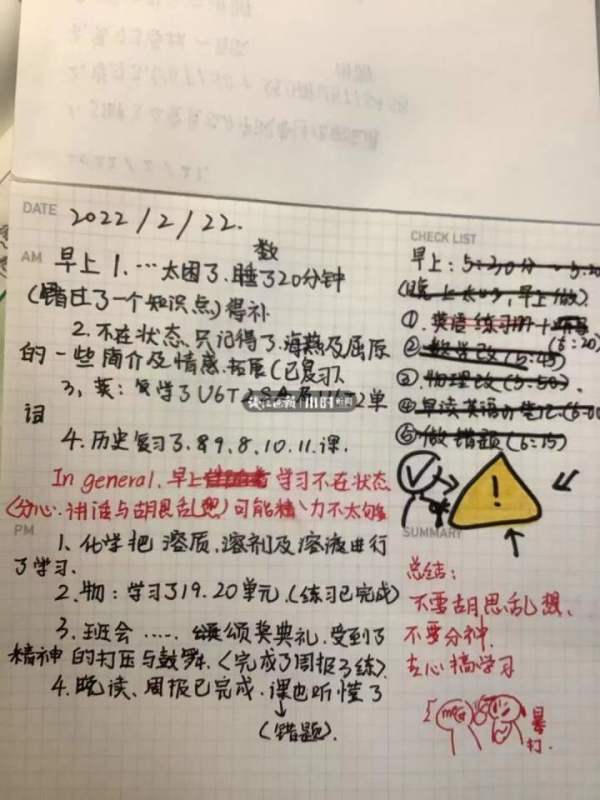 DATE 2022/2/22.
AM
数
早上 1. …太困了.睡了20分钟
(错过了一个知识点)得补
2. 不在状态.只记得了.海燕及屈原
的一些简介及情感.拓展(已复习)
3. 英:复学了U6T2 单
词
4. 历史复习了.8 9.8.10.11.课.
In general.早上 学习不在状态
(分心.讲话与胡思乱想)可能精力不太够
PM
1. 化学把溶质.溶剂及溶液进行
了学习.
2. 物:学习了19.20单元.(练习已完成)
3. 班会 ..... 颁奖典礼.受到了
精神的打压与鼓舞.(完成了周报了练)
4. 晚读、周报已完成.课也听懂了
(错题).
CHECK LIST
早上:5:30分
(晚上太困,早上做).
①.英语练习册
(5:20)
②数学改(5:45)
③.物理改(5:50).
④早读英语
⑤做错题(6:15)
!
SUMMARY
总结:
不要胡思乱想.
不要分神.
专心搞学习
暴
打.